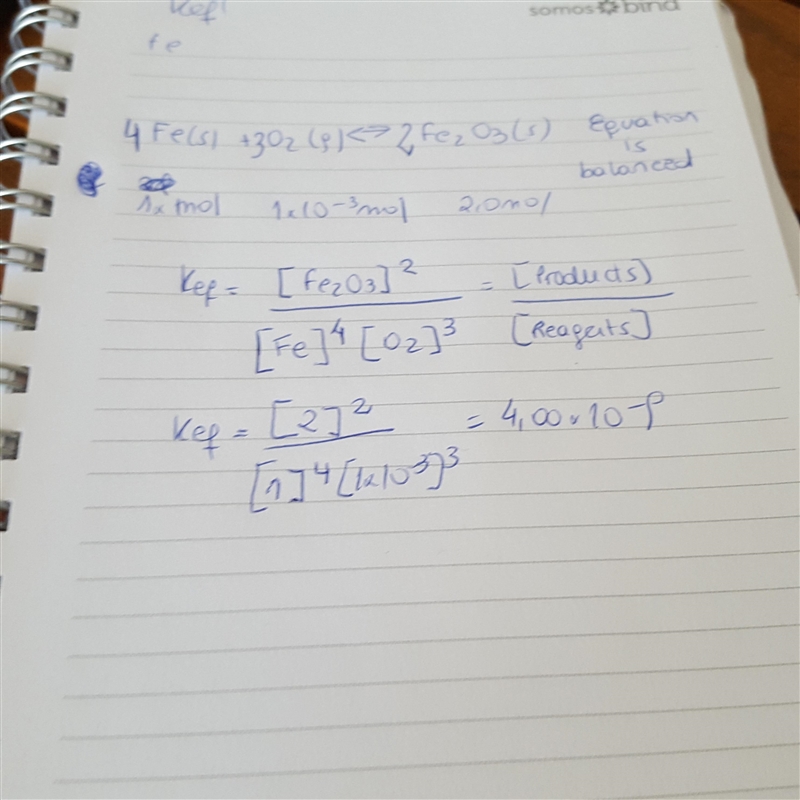 Kef
somos bind
fe
4Fe(s) + 3O2(g) <=> 2Fe2O3(s) Equation is balanced
1x mol 1x10^-3 mol 2,0 mol
Kef = [Fe2O3]^2 / [Fe]^4 [O2]^3 = [Products] / [Reagents]
Kef = [2]^2 / [1]^4 [1x10^-3]^3 = 4,00 x 10^-9